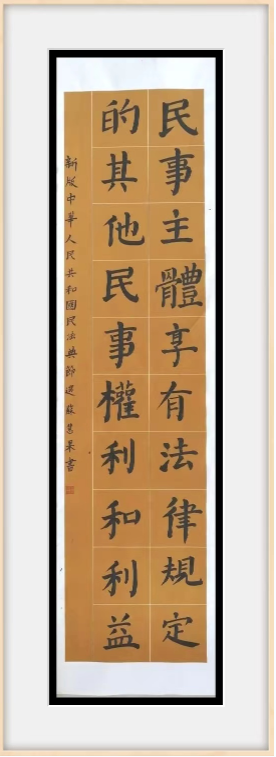 民事主體享有法律規定
的其他民事權利和利益
新版中華人民共和國民法典節選蘇慧書